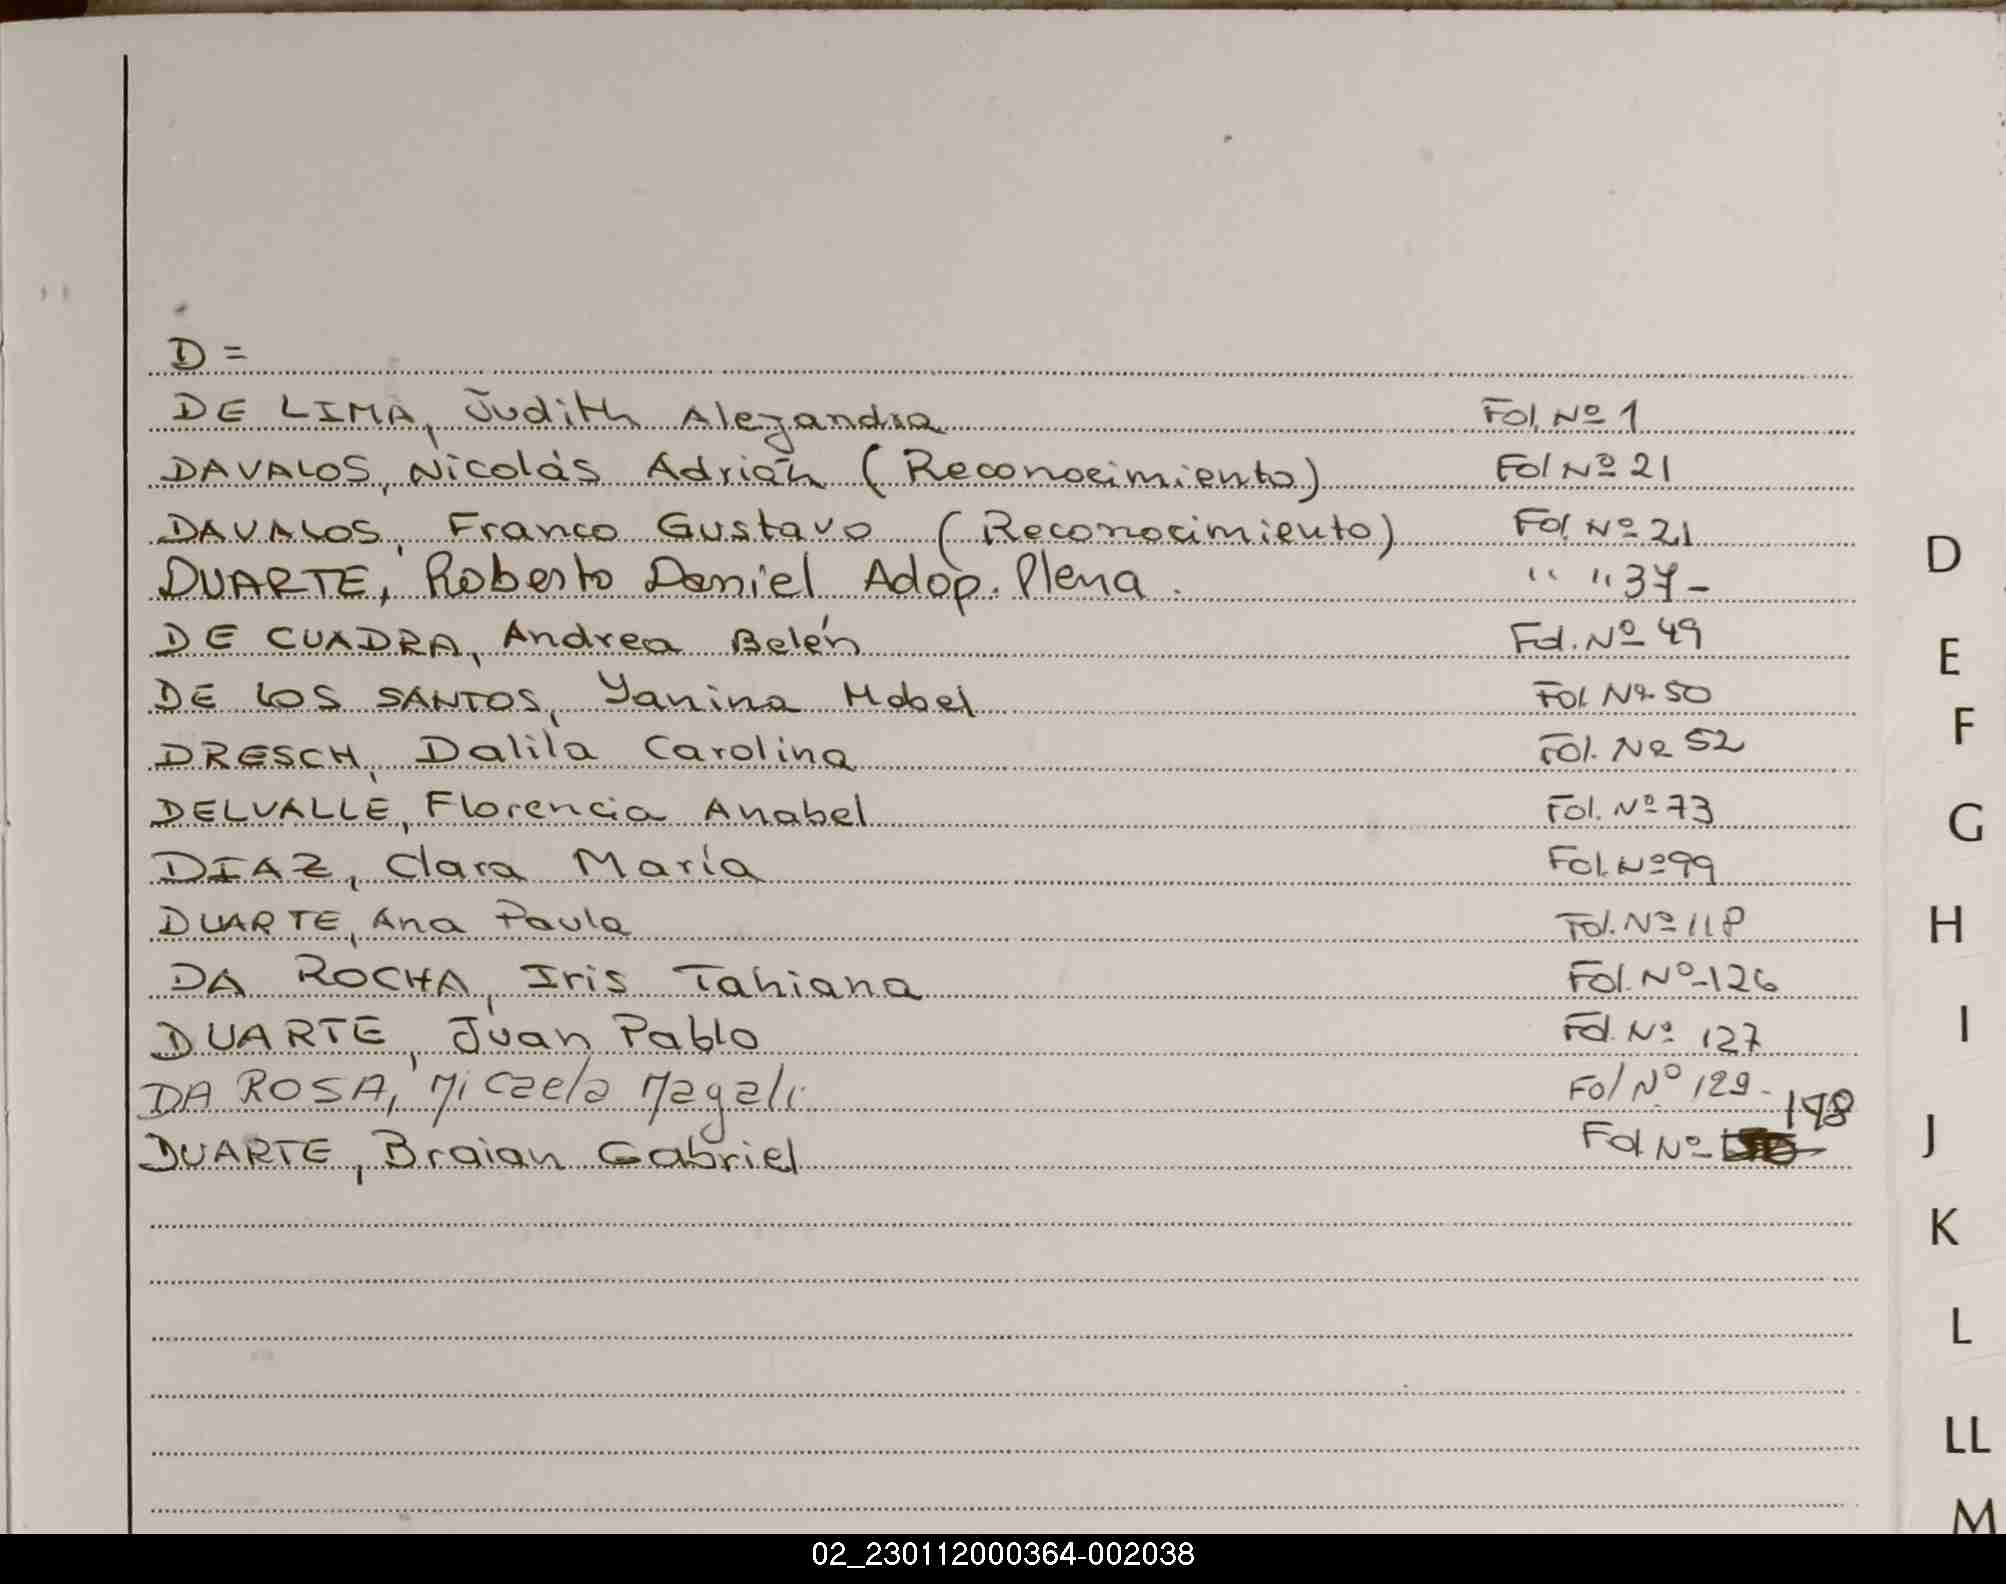 D =
DE LIMA, Judith Alejandra Fol. Nº 1
DAVALOS, Nicolás Adrián (Reconocimiento) Fol Nº 21
DAVALOS, Franco Gustavo (Reconocimiento) Fol. Nº 21
DUARTE, Roberto Daniel Adop. Plena. " " 37-
DE CUADRA, Andrea Belén Fol. Nº 49
DE LOS SANTOS, Yanina Mabel Fol. Nº 50
DRESCH, Dalila Carolina Fol. Nº 52
DELVALLE, Florencia Anabel Fol. Nº 73
DIAZ, Clara María Fol. Nº 99
DUARTE, Ana Paula Fol. Nº 118
DA ROCHA, Iris Tahiana Fol. Nº 126
DUARTE, Juan Pablo Fol. Nº 127
DA ROSA, Micaela Magali Fol Nº 129-
DUARTE, Braian Gabriel Fol Nº 198
D
E
F
G
H
I
J
K
L
LL
M
02_230112000364-002038